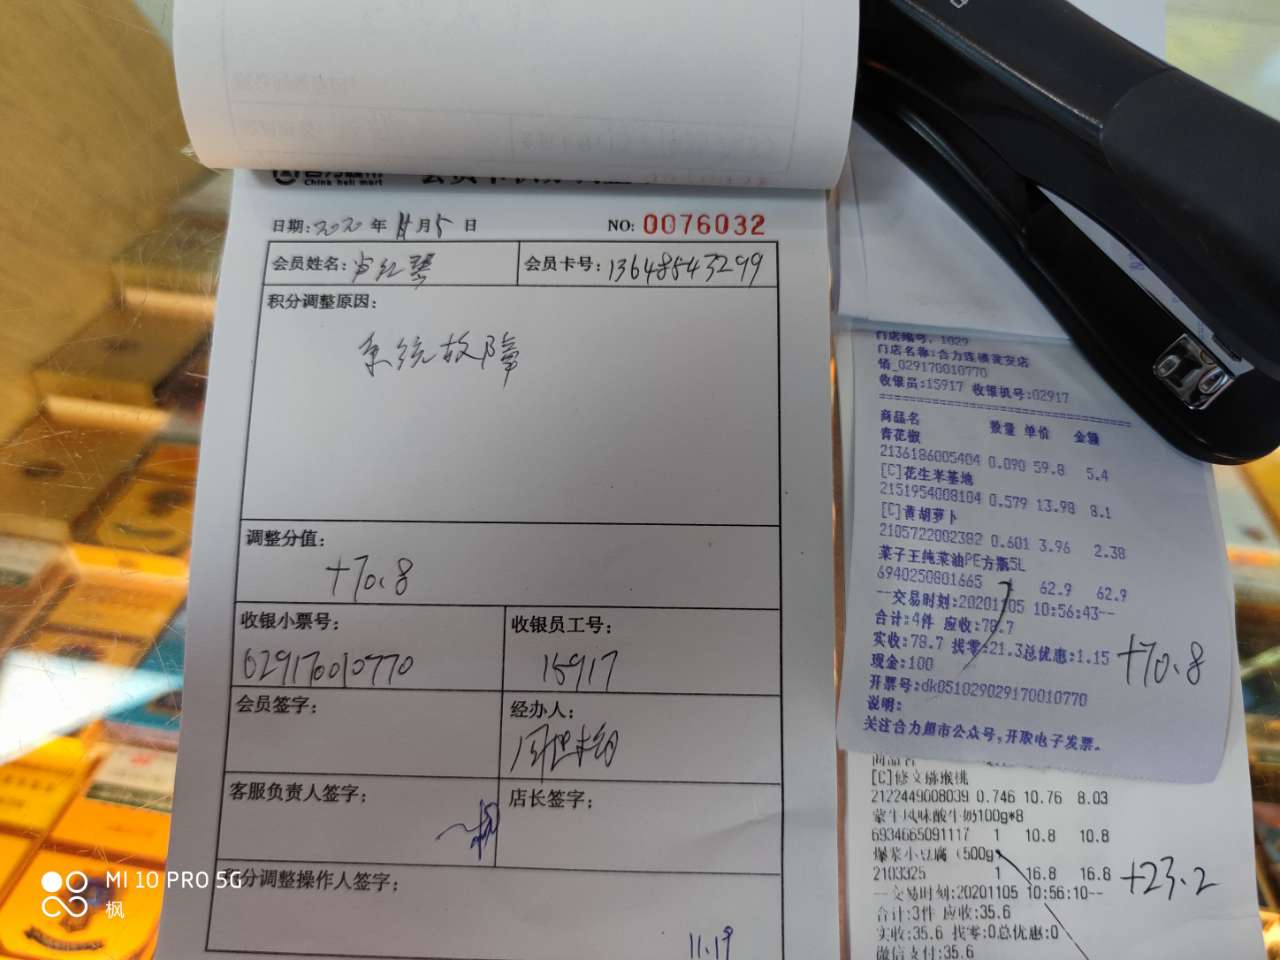 China heli mart
日期:2020年11月5日
NO: 0076032
会员姓名:
会员卡号: 13648543299
积分调整原因:
系统故障
调整分值:
+70.8
收银小票号:
收银员工号:
029170010770
15917
会员签字:
经办人:
客服负责人签字:
店长签字:
积分调整操作人签字:
11.19
门店编号: 1029
门店名称:合力连锁瓮安店
销_029170010770
收银员:15917 收银机号:02917
商品名 数量 单价 金额
青花椒
2136186005404 0.090 59.8 5.4
[C]花生米基地
2151954008104 0.579 13.98 8.1
[C]黄胡萝卜
2105722002382 0.601 3.96 2.38
菜子王纯菜油PE方瓶5L
6940250801665 62.9 62.9
--交易时刻:20201105 10:56:43--
合计:4件 应收:78.7
实收:78.7 找零:21.3总优惠:1.15
+70.8
现金:100
开票号:dk051029029170010770
说明:
关注合力超市公众号,开取电子发票。
商品名
[C]修文猕猴桃
2122449008039 0.746 10.76 8.03
蒙牛风味酸牛奶100g*8
6934665091117 1 10.8 10.8
爆浆小豆腐（500g）
2103325 1 16.8 16.8
+23.2
--交易时刻:20201105 10:56:10--
合计:3件 应收:35.6
实收:35.6 找零:0总优惠:0
微信支付:35.6
MI 10 PRO 5G
枫